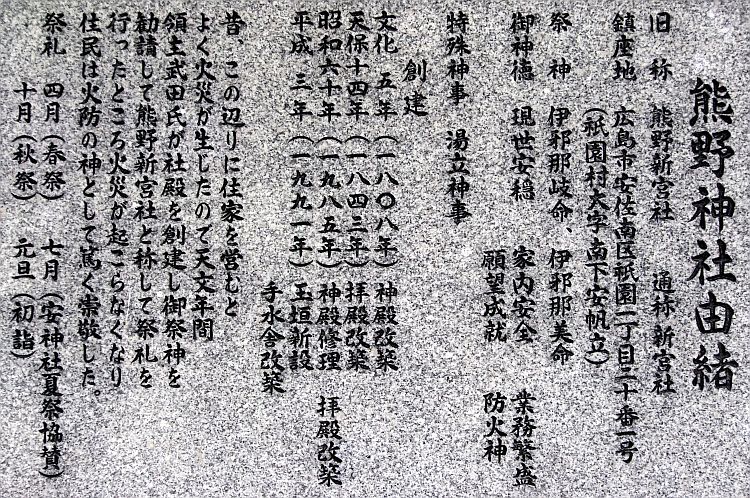 熊野神社由緒
旧称 熊野新宮社 通称 新宮社
鎮座地 広島市安佐南区祇園二丁目二十番一号
(祇園村大字南下安帆立)
祭神 伊邪那岐命、伊邪那美命
御神徳 現世安穏 家内安全 業務繁盛
願望成就 防火神
特殊神事 湯立神事
創建
文化五年(一八〇八年)神殿改築
天保十四年(一八四三年)拝殿改築
昭和六十年(一九八五年)神殿修理 拝殿改築
平成三年(一九九一年)玉垣新設
手水舎改築
昔、この辺りに住家を営むと
よく火災が生じたので天文年間
領主武田氏が社殿を創建し御祭神を
勧請して熊野新宮社と称して祭礼を
行ったところ火災が起こらなくなり
住民は火防の神として篤く崇敬した。
祭礼 四月(春祭) 七月(安神社夏祭協賛)
十月(秋祭) 元旦(初詣)